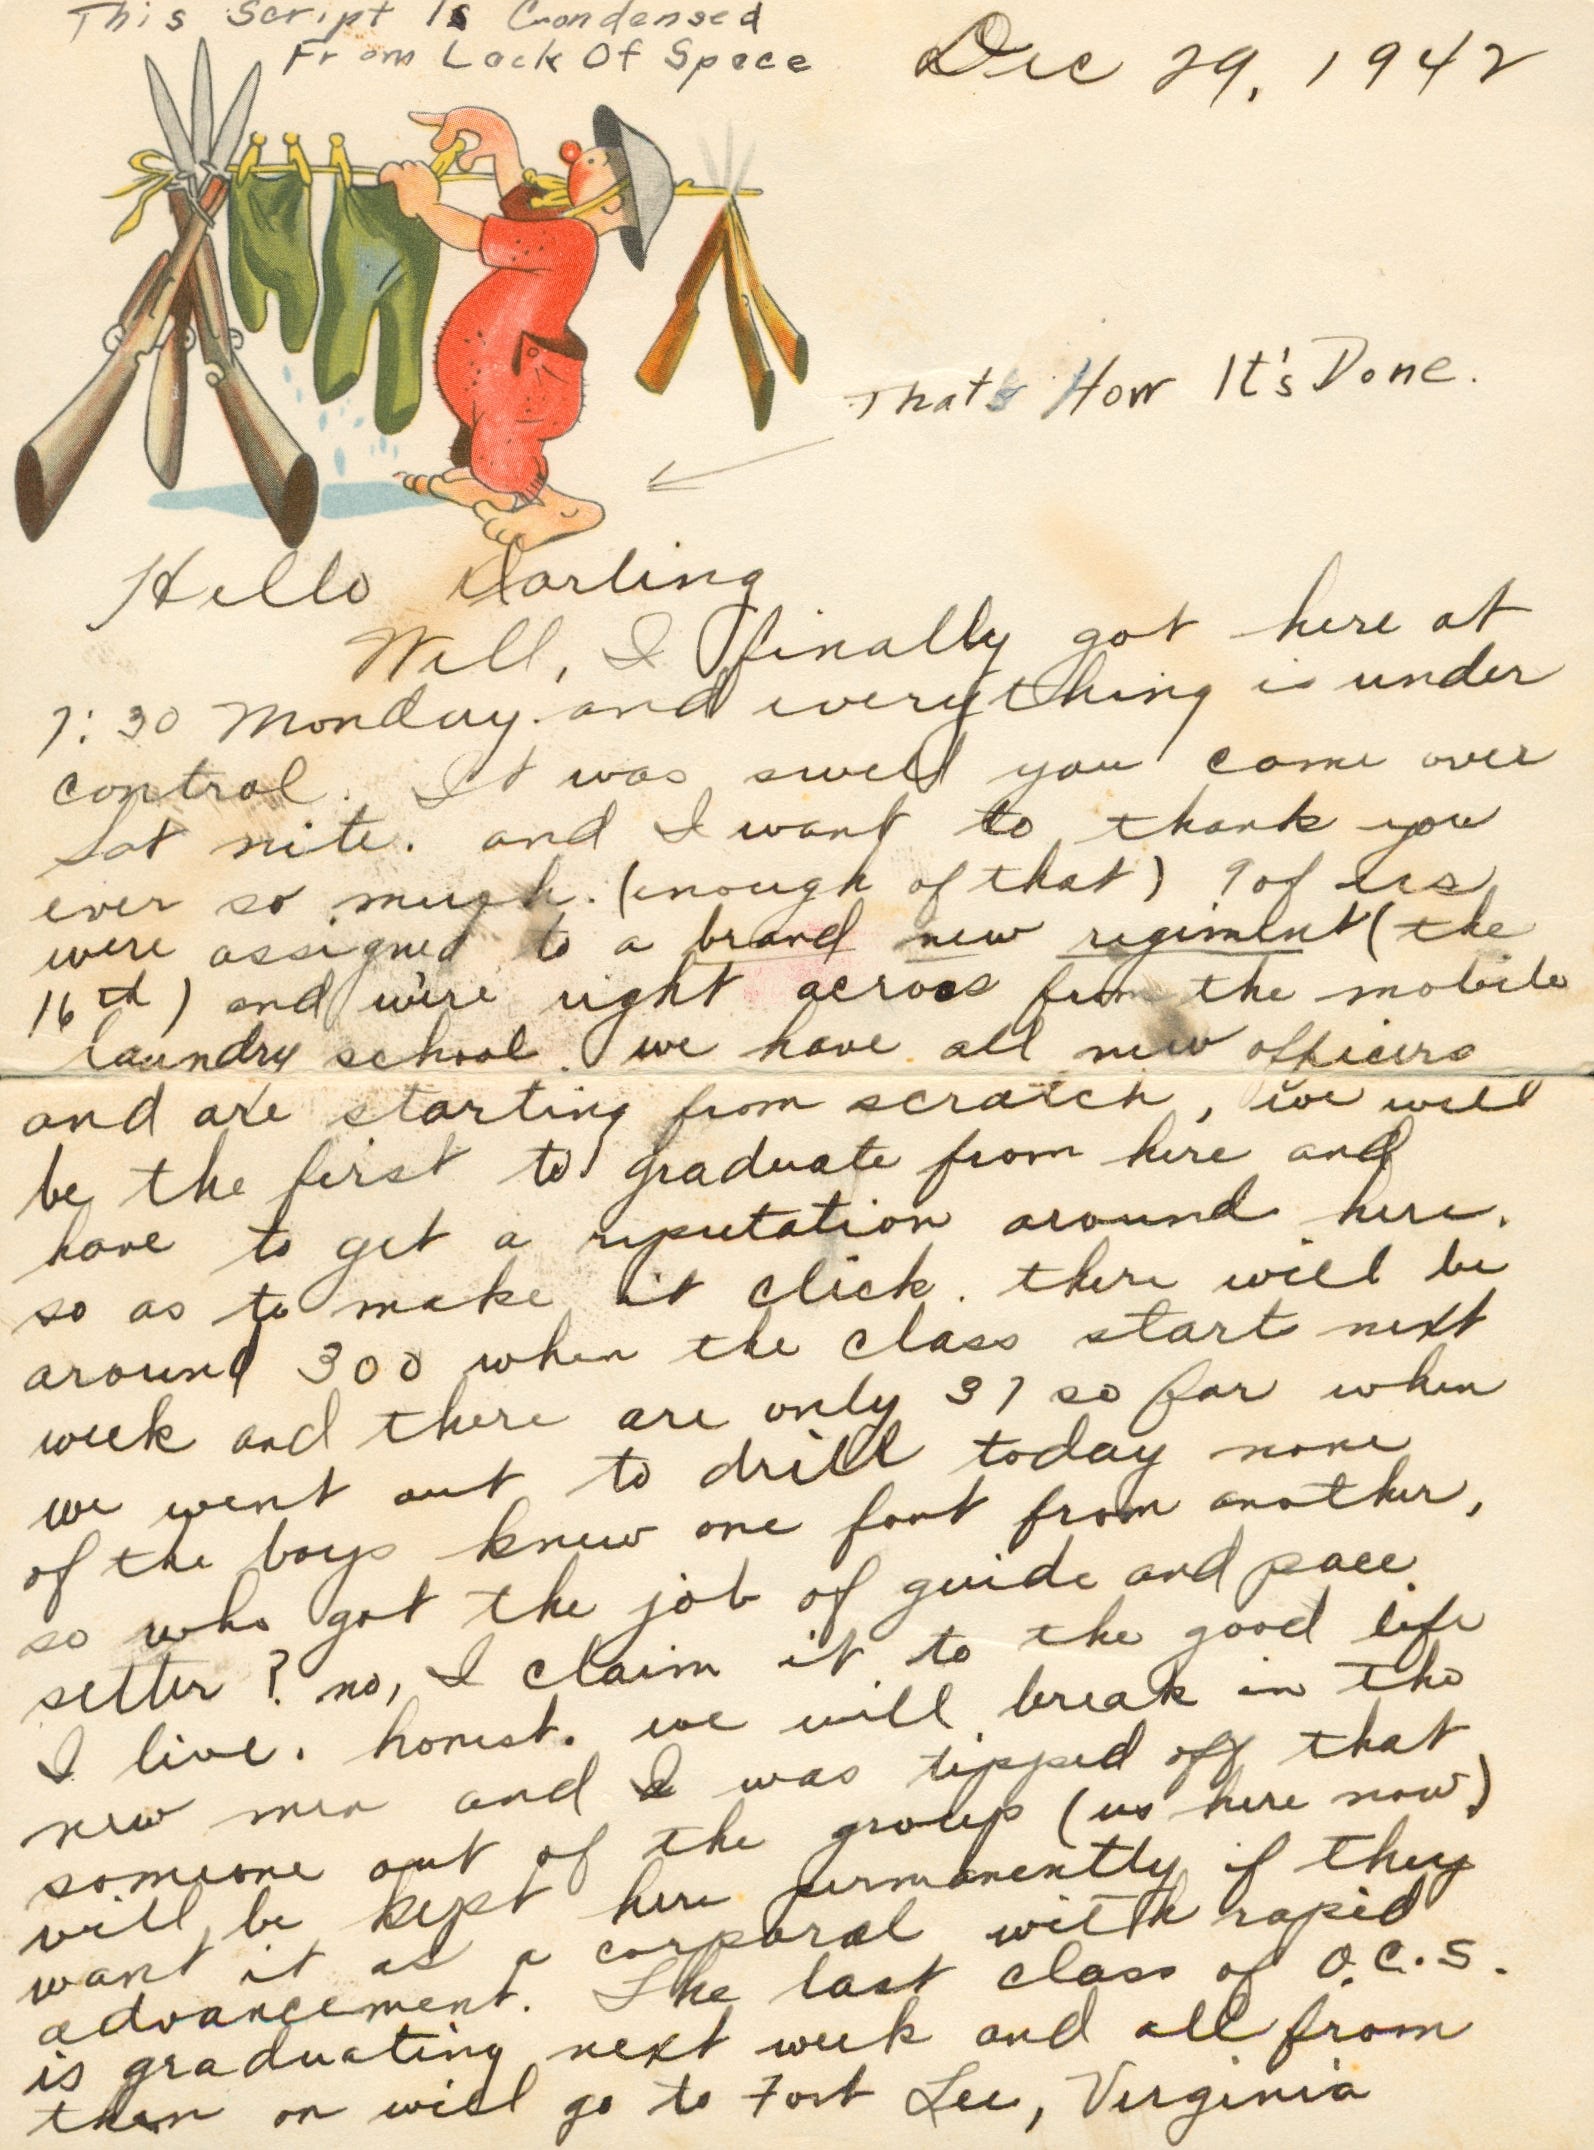 This Script Is Condensed
From Lack Of Space
Dec 29, 1942
That's How It's Done.
Hello Darling
Well, I finally got here at
7:30 Monday and everything is under
control. It was swell you came over
Sat nite. and I want to thank you
ever so much. (enough of that) 9 of us
were assigned to a brand new regiment (the
16th) and we're right across from the mobile
laundry school. we have all new officers
and are starting from scratch, we will
be the first to graduate from here and
have to get a reputation around here.
so as to make it click. there will be
around 300 when the class start next
week and there are only 37 so far when
we went out to drill today none
of the boys knew one foot from another,
so who got the job of guide and pace
setter? no, I claim it to the good life
I live. honest. we will break in the
new men and I was tipped off that
someone out of the group (us here now)
will be kept here permanently if they
want it as a corporal with rapid
advancement. The last class of O.C.S.
is graduating next week and all from
then on will go to Fort Lee, Virginia